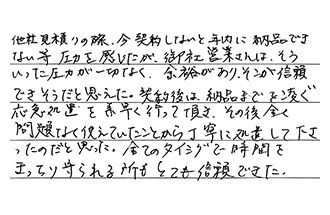 他社見積りの際、今契約しないと年内に納品でき
ない等圧力を感じたが、御社営業さんは、そう
いった圧力が一切なく、余裕があり、そこが信頼
できそうだと思えた。契約後は、納品までの凌ぐ
応急処置を素早く行って頂き、その後全く
問題なく使えていたことから丁寧に処置して下さ
ったのだと思った。全てのタイミングで時間を
きっちり守られる所もとても信頼できた。